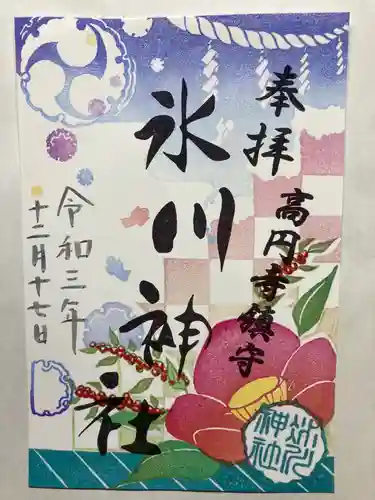 奉拝
高円寺鎮守
氷川神社
令和三年
十二月十七日
氷川
神社